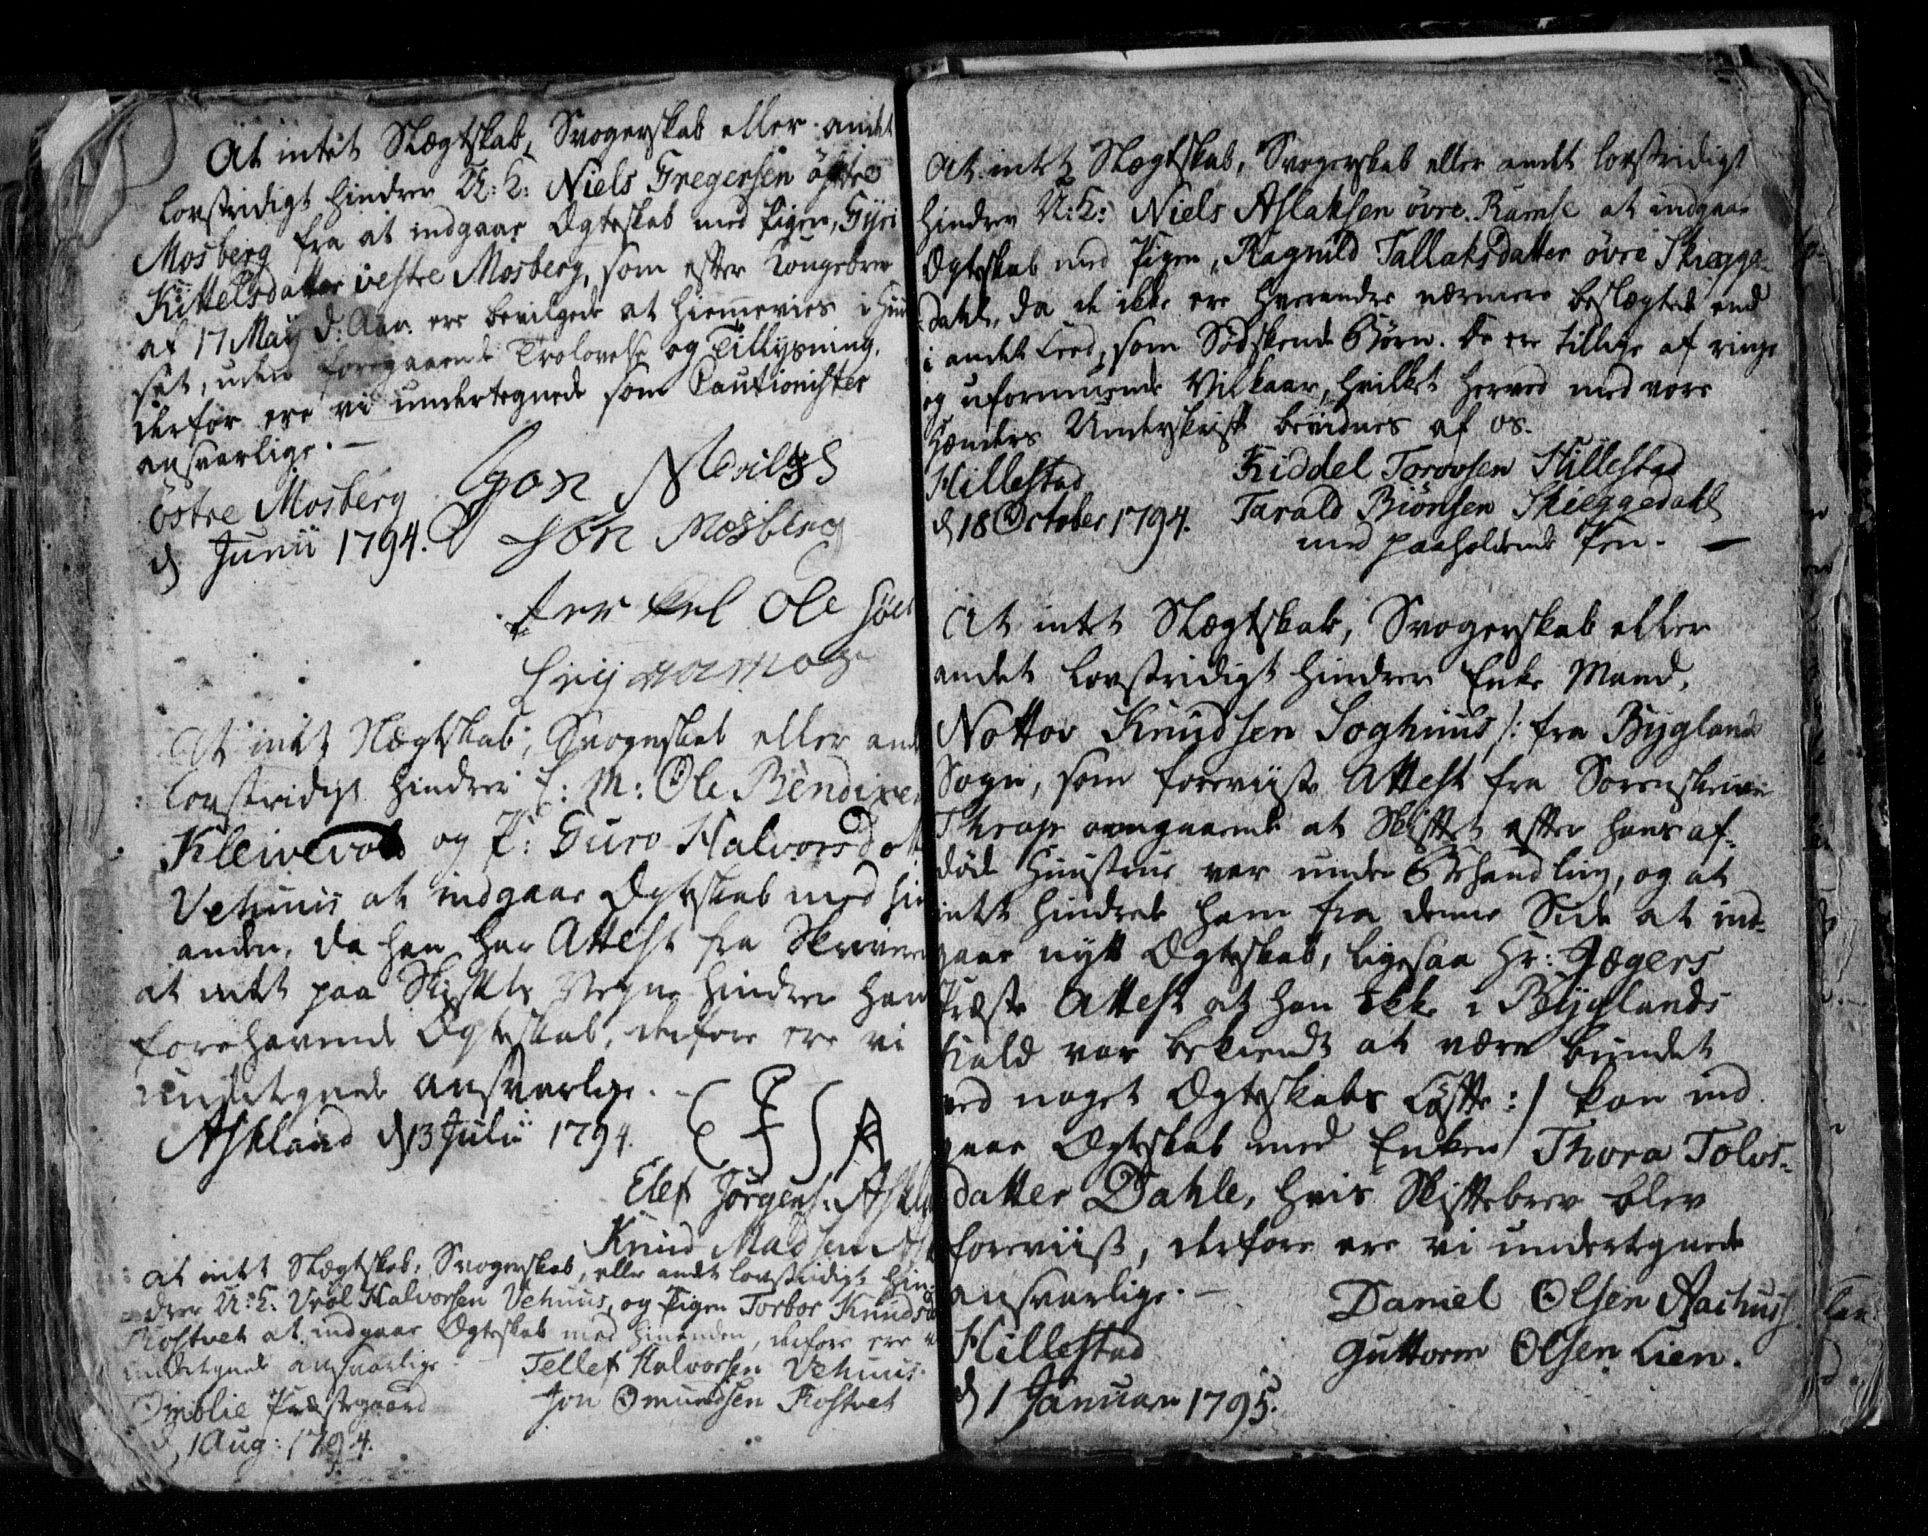 At intet Slægtskab, Svogerskab eller andet
lovstridigt hindrer U: K: Niels Gregersen östre
Mosberg fra at indgaae Ægteskab med Pigen, Gyri
Kittelsdatter vestre Mosberg, som efter Kongebrev
af 17 May d: Aar. ere bevilgede at hiemmevies i Huu
set, uden foregaaende Trolovelse og Tillysning,
derfor ere vi undertegnede som Cautionister
ansvarlige. —
östre Mosberg
d Junii 1794.
Jon Mosberg
Ole
At intet Slægtskab, Svogerskab eller and
lovstridigt hindrer E: M: Ole Bendixen
Kleivevold og P: Guro Halvorsdot
Vehuus at indgaae Ægteskab med hin
anden, da han har Attest fra Skriveren
at intet paa Skiftets Vegne hindrer hans
forehavende Ægteskab, derfore ere vi
undertegnede ansvarlige.
Askland d 13 Julii 1794.
Elef Jörgens: Askl
Knud Madsen Ask
At intet Slægtskab, Svogerskab, eller andet lovstridigt hin-
drer U: K: Vröl Halvorsen Vehuus, og Pigen Torbor Knudsd
Rostvet at indgaae Ægteskab med hinanden, derfore ere v
undertegnede ansvarlige.
Tellef Halvorsen Vehuus.
Omblie Præstegaard
Jon Omundsen Rostvet
d, 1 Aug: 1794.
At intet Slægtskab, Svogerskab eller andet lovstridigt
hindrer U: K: Niels Aslaksen övre Ramse at indgaae
Ægteskab med Pigen, Ragnild Tallaksdatter övre Skiegge-
dahl, da de ikke ere hverandre nærmere beslægtede end
i andet Leed, som Södskende Börn. De ere tillige af ringe
og uformuende Vilkaar, hvilket herved med vore
Hænders Underskrift bevidnes af os.
Hillestad
Kiddel Torovsen Hillestad
d 18 October 1794.
Tarald Biönsen Skieggedahl
med paaholdende Pen. —
At intet Slægtskab, Svogerskab eller
andet lovstridigt hindrer Enke Mand,
Nottov Knudsen Soghuus /: fra Byglands
Sogn, som foreviiste Attest fra Sorenskriver
angaaende at Skiftet efter hans af-
döde Huustrue var under Behandling, og at
intet hindrede ham fra denne Side at ind-
gaae nytt Ægteskab, ligesaa Hr: Jægers
Præste Attest at han ikke i Byglands
Kald var bekiendt at være bundet
ved noget Ægteskabs Löfte :/ kan ind
gaae Ægteskab med Enken Thora Tolvs-
datter Dahle, hvis Skiftebrev blev
foreviist, derfore ere vi undertegnede
ansvarlige. —
Daniel Olsen Aashuus
Hillestad
Guttorm Olsen Lien.
d 1 Januari 1795.